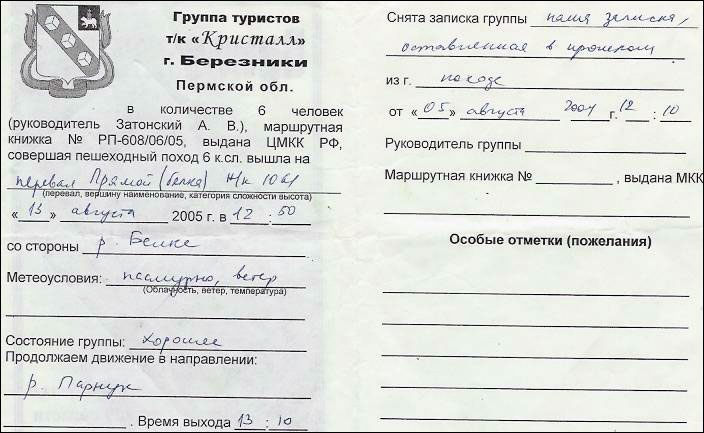 Группа туристов
т/к «Кристалл»
г. Березники
Пермской обл.
в количестве 6 человек
(руководитель Затонский А. В.), маршрутная
книжка № РП-608/06/05, выдана ЦМКК РФ,
совершая пешеходный поход 6 к.сл. вышла на
перевал Прямой (белка) Н/к
(перевал, вершину наименование, категория сложности высота)
« 13 » августа 2005 г. в 12 : 50
со стороны р. Белке
Метеоусловия: пасмурно, ветер
(Облачность, ветер, температура)
Состояние группы: хорошее
Продолжаем движение в направлении:
р. Парнук
. Время выхода 13 : 10
Снята записка группы наша записка,
оставленная в прошлом
из г. походе
от « 05 » августа 2004 г. 12 : 10
Руководитель группы
Маршрутная книжка № , выдана МКК
Особые отметки (пожелания)